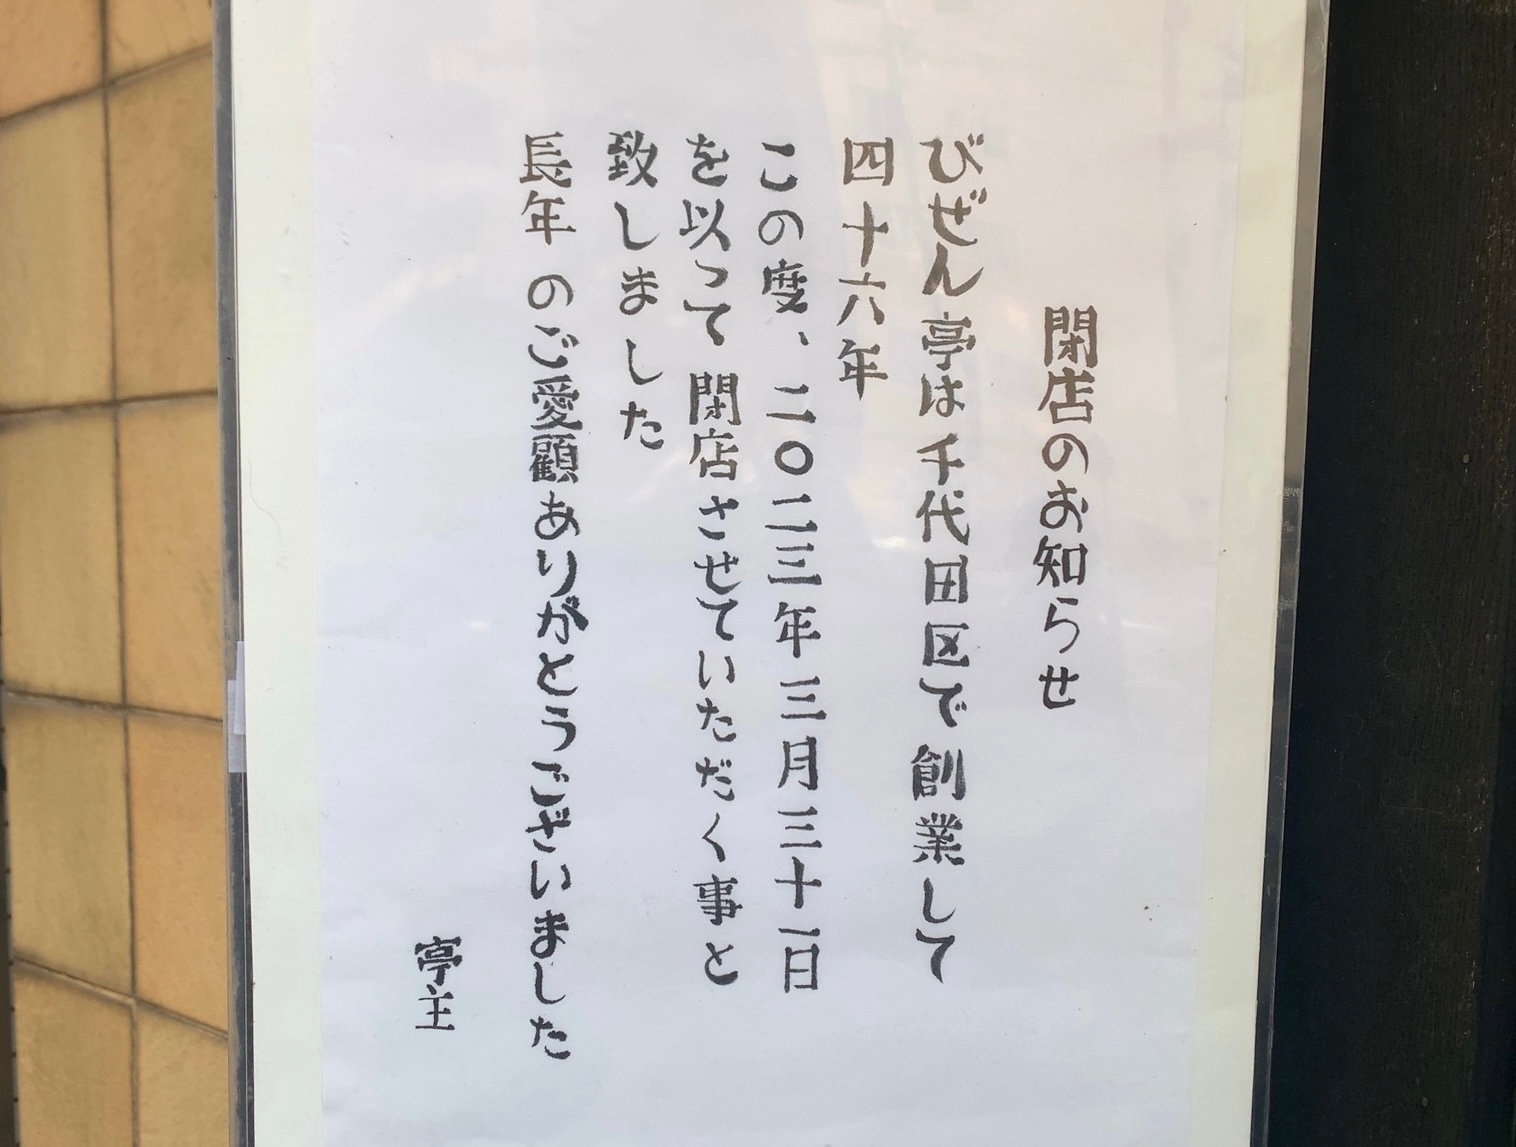 閉店のお知らせ
びぜん亭は千代田区で創業して
四十六年
この度、二〇二三年三月三十一日
を以って閉店させていただく事と
致しました
長年のご愛顧ありがとうございました
亭主